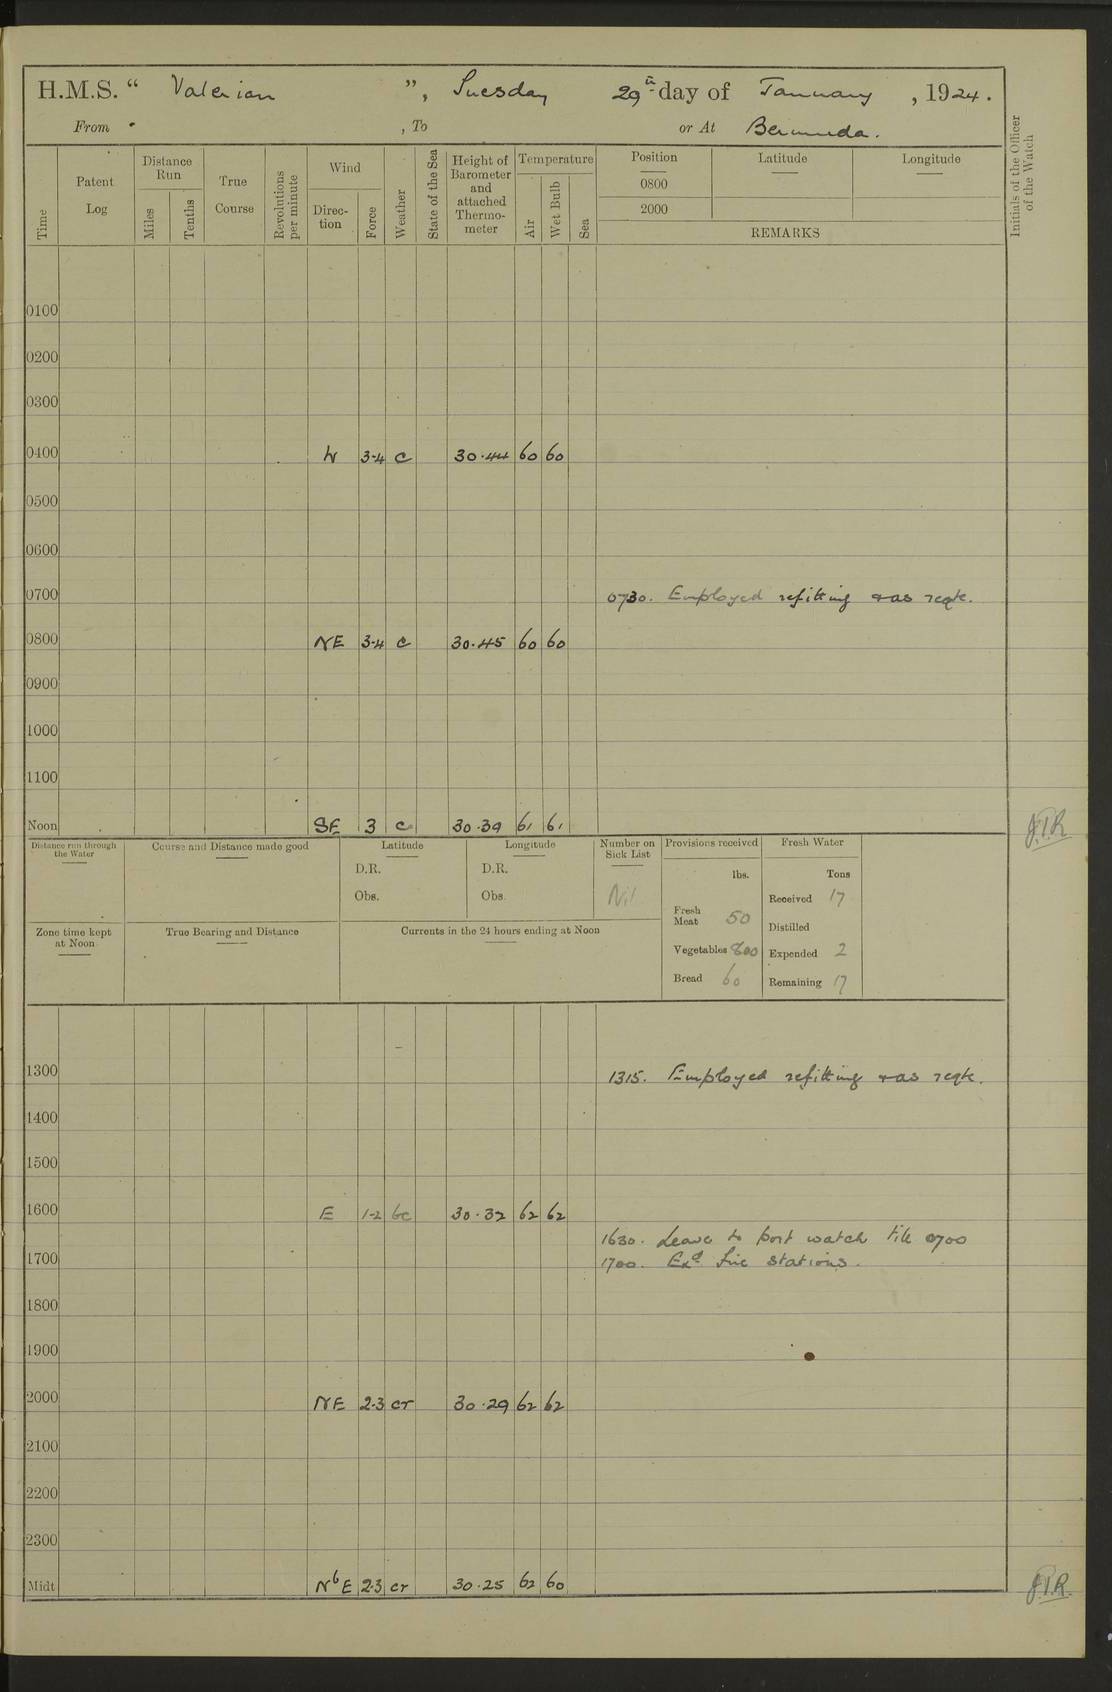 H.M.S. “ Valerian ”, Tuesday 29th day of January , 1924.
From , To or At Bermuda.
Time
Patent Log
Distance Run
Miles
Tenths
True Course
Revolutions per minute
Wind
Direc-tion
Force
Weather
State of the Sea
Height of Barometer and attached Thermo-meter
Temperature
Air
Wet Bulb
Sea
Position Latitude Longitude
0800
2000
REMARKS
Initials of the Officer of the Watch
0100
0200
0300
0400 N 3-4 c 30.44 60 60
0500
0600
0700 0730. Employed refitting & as reqte.
0800 NE 3-4 c 30.45 60 60
0900
1000
1100
Noon SE 3 c 30.39 61 61 J.I.R
Distance run through the Water
Course and Distance made good
Latitude
D.R.
Obs.
Longitude
D.R.
Obs.
Number on Sick List
Nil
Provisions received
lbs.
Fresh Meat 50
Vegetables 800
Bread 60
Fresh Water
Tons
Received 17
Distilled
Expended 2
Remaining 17
Zone time kept at Noon
True Bearing and Distance
Currents in the 24 hours ending at Noon
1300 1315. Employed refitting & as reqte.
1400
1500
1600 E 1-2 bc 30.32 62 62
1630. Leave to port watch till 0700
1700 1700. Exd fire stations.
1800
1900
2000 NE 2-3 cr 30.29 62 62
2100
2200
2300
Midt NbE 2-3 cr 30.25 62 60 J.I.R.